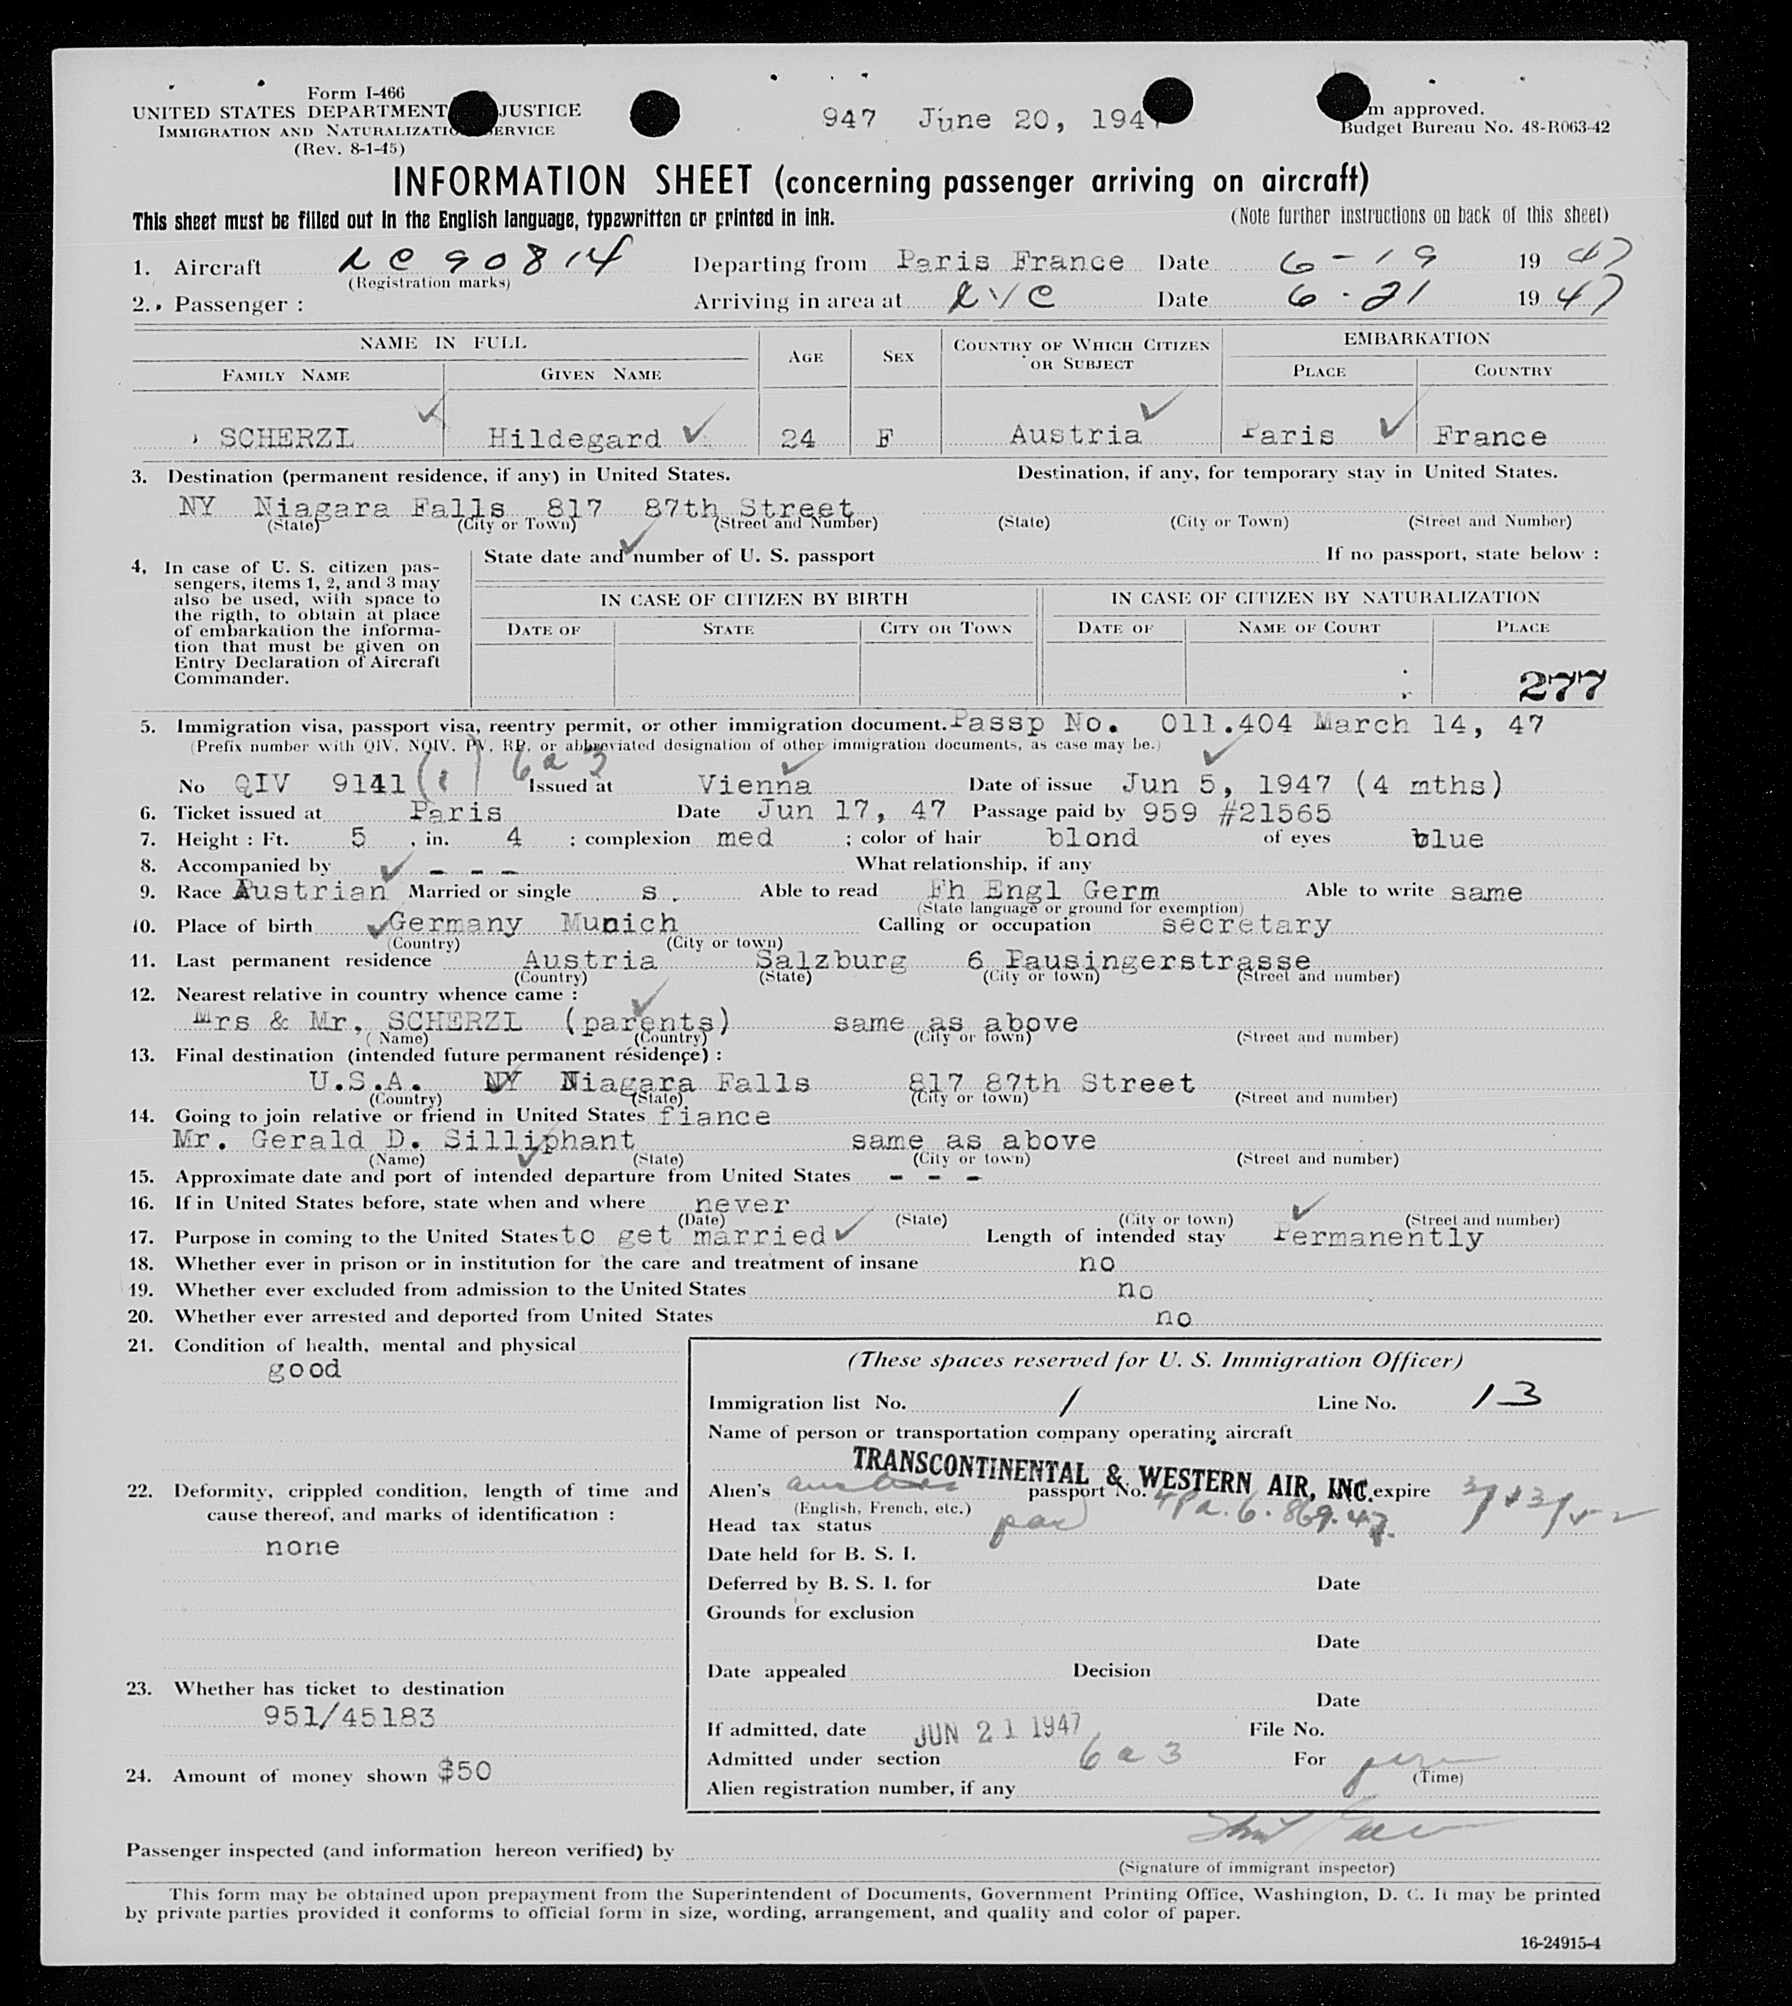 Form I-466
UNITED STATES DEPARTMENT JUSTICE
IMMIGRATION AND NATURALIZATION SERVICE
(Rev. 8-1-45)
947 June 20, 1947
approved.
Budget Bureau No. 43-R063-42
INFORMATION SHEET (concerning passenger arriving on aircraft)
This sheet must be filled out in the English language, typewritten or printed in ink.
(Note further instructions on back of this sheet)
1. Aircraft NC 90814 Departing from Paris France Date 6-19 1947
(Registration marks)
2. Passenger : Arriving in area at NYC Date 6-21 1947
NAME IN FULL AGE SEX COUNTRY OF WHICH CITIZEN OR SUBJECT EMBARKATION
FAMILY NAME GIVEN NAME PLACE COUNTRY
SCHERZL Hildegard 24 F Austria Paris France
3. Destination (permanent residence, if any) in United States. Destination, if any, for temporary stay in United States.
NY Niagara Falls 817 87th Street
(State) (City or Town) (Street and Number) (State) (City or Town) (Street and Number)
4. In case of U. S. citizen pas-
sengers, items 1, 2, and 3 may
also be used, with space to
the rigth, to obtain at place
of embarkation the informa-
tion that must be given on
Entry Declaration of Aircraft
Commander.
State date and number of U. S. passport If no passport, state below :
IN CASE OF CITIZEN BY BIRTH IN CASE OF CITIZEN BY NATURALIZATION
DATE OF STATE CITY OR TOWN DATE OF NAME OF COURT PLACE
277
5. Immigration visa, passport visa, reentry permit, or other immigration document. Passp No. 011.404 March 14, 47
(Prefix number with QIV, NQIV, PV, RP, or abbreviated designation of other immigration documents, as case may be.)
6 a 3
No QIV 9141 Issued at Vienna Date of issue Jun 5, 1947 (4 mths)
6. Ticket issued at Paris Date Jun 17, 47 Passage paid by 959 #21565
7. Height : Ft. 5 , in. 4 ; complexion med ; color of hair blond of eyes blue
8. Accompanied by - - - What relationship, if any
9. Race Austrian Married or single s. Able to read Fh Engl Germ Able to write same
(State language or ground for exemption)
10. Place of birth Germany Munich Calling or occupation secretary
(Country) (City or town)
11. Last permanent residence Austria Salzburg 6 Pausingerstrasse
(Country) (State) (City or town) (Street and number)
12. Nearest relative in country whence came :
Mrs & Mr, SCHERZL (parents) same as above
(Name) (Country) (City or town) (Street and number)
13. Final destination (intended future permanent résidence) :
U.S.A. NY Niagara Falls 817 87th Street
(Country) (State) (City or town) (Street and number)
14. Going to join relative or friend in United States fiance
Mr. Gerald D. Silliphant same as above
(Name) (State) (City or town) (Street and number)
15. Approximate date and port of intended departure from United States - - -
16. If in United States before, state when and where never
(Date) (State) (City or town) (Street and number)
17. Purpose in coming to the United States to get married Length of intended stay Permanently
18. Whether ever in prison or in institution for the care and treatment of insane no
19. Whether ever excluded from admission to the United States no
20. Whether ever arrested and deported from United States no
21. Condition of health, mental and physical
good
22. Deformity, crippled condition, length of time and
cause thereof, and marks of identification :
none
23. Whether has ticket to destination
951/45183
24. Amount of money shown $50
(These spaces reserved for U. S. Immigration Officer)
Immigration list No. 1 Line No. 13
Name of person or transportation company operating aircraft
TRANSCONTINENTAL & WESTERN AIR, INC.
Alien's passport No. expire
(English, French, etc.)
Head tax status
Date held for B. S. I.
Deferred by B. S. I. for Date
Grounds for exclusion
Date
Date appealed Decision
Date
If admitted, date JUN 21 1947 File No.
Admitted under section 6 a 3 For
(Time)
Alien registration number, if any
Passenger inspected (and information hereon verified) by
(Signature of immigrant inspector)
This form may be obtained upon prepayment from the Superintendent of Documents, Government Printing Office, Washington, D. C. It may be printed
by private parties provided it conforms to official form in size, wording, arrangement, and quality and color of paper.
16-24915-4